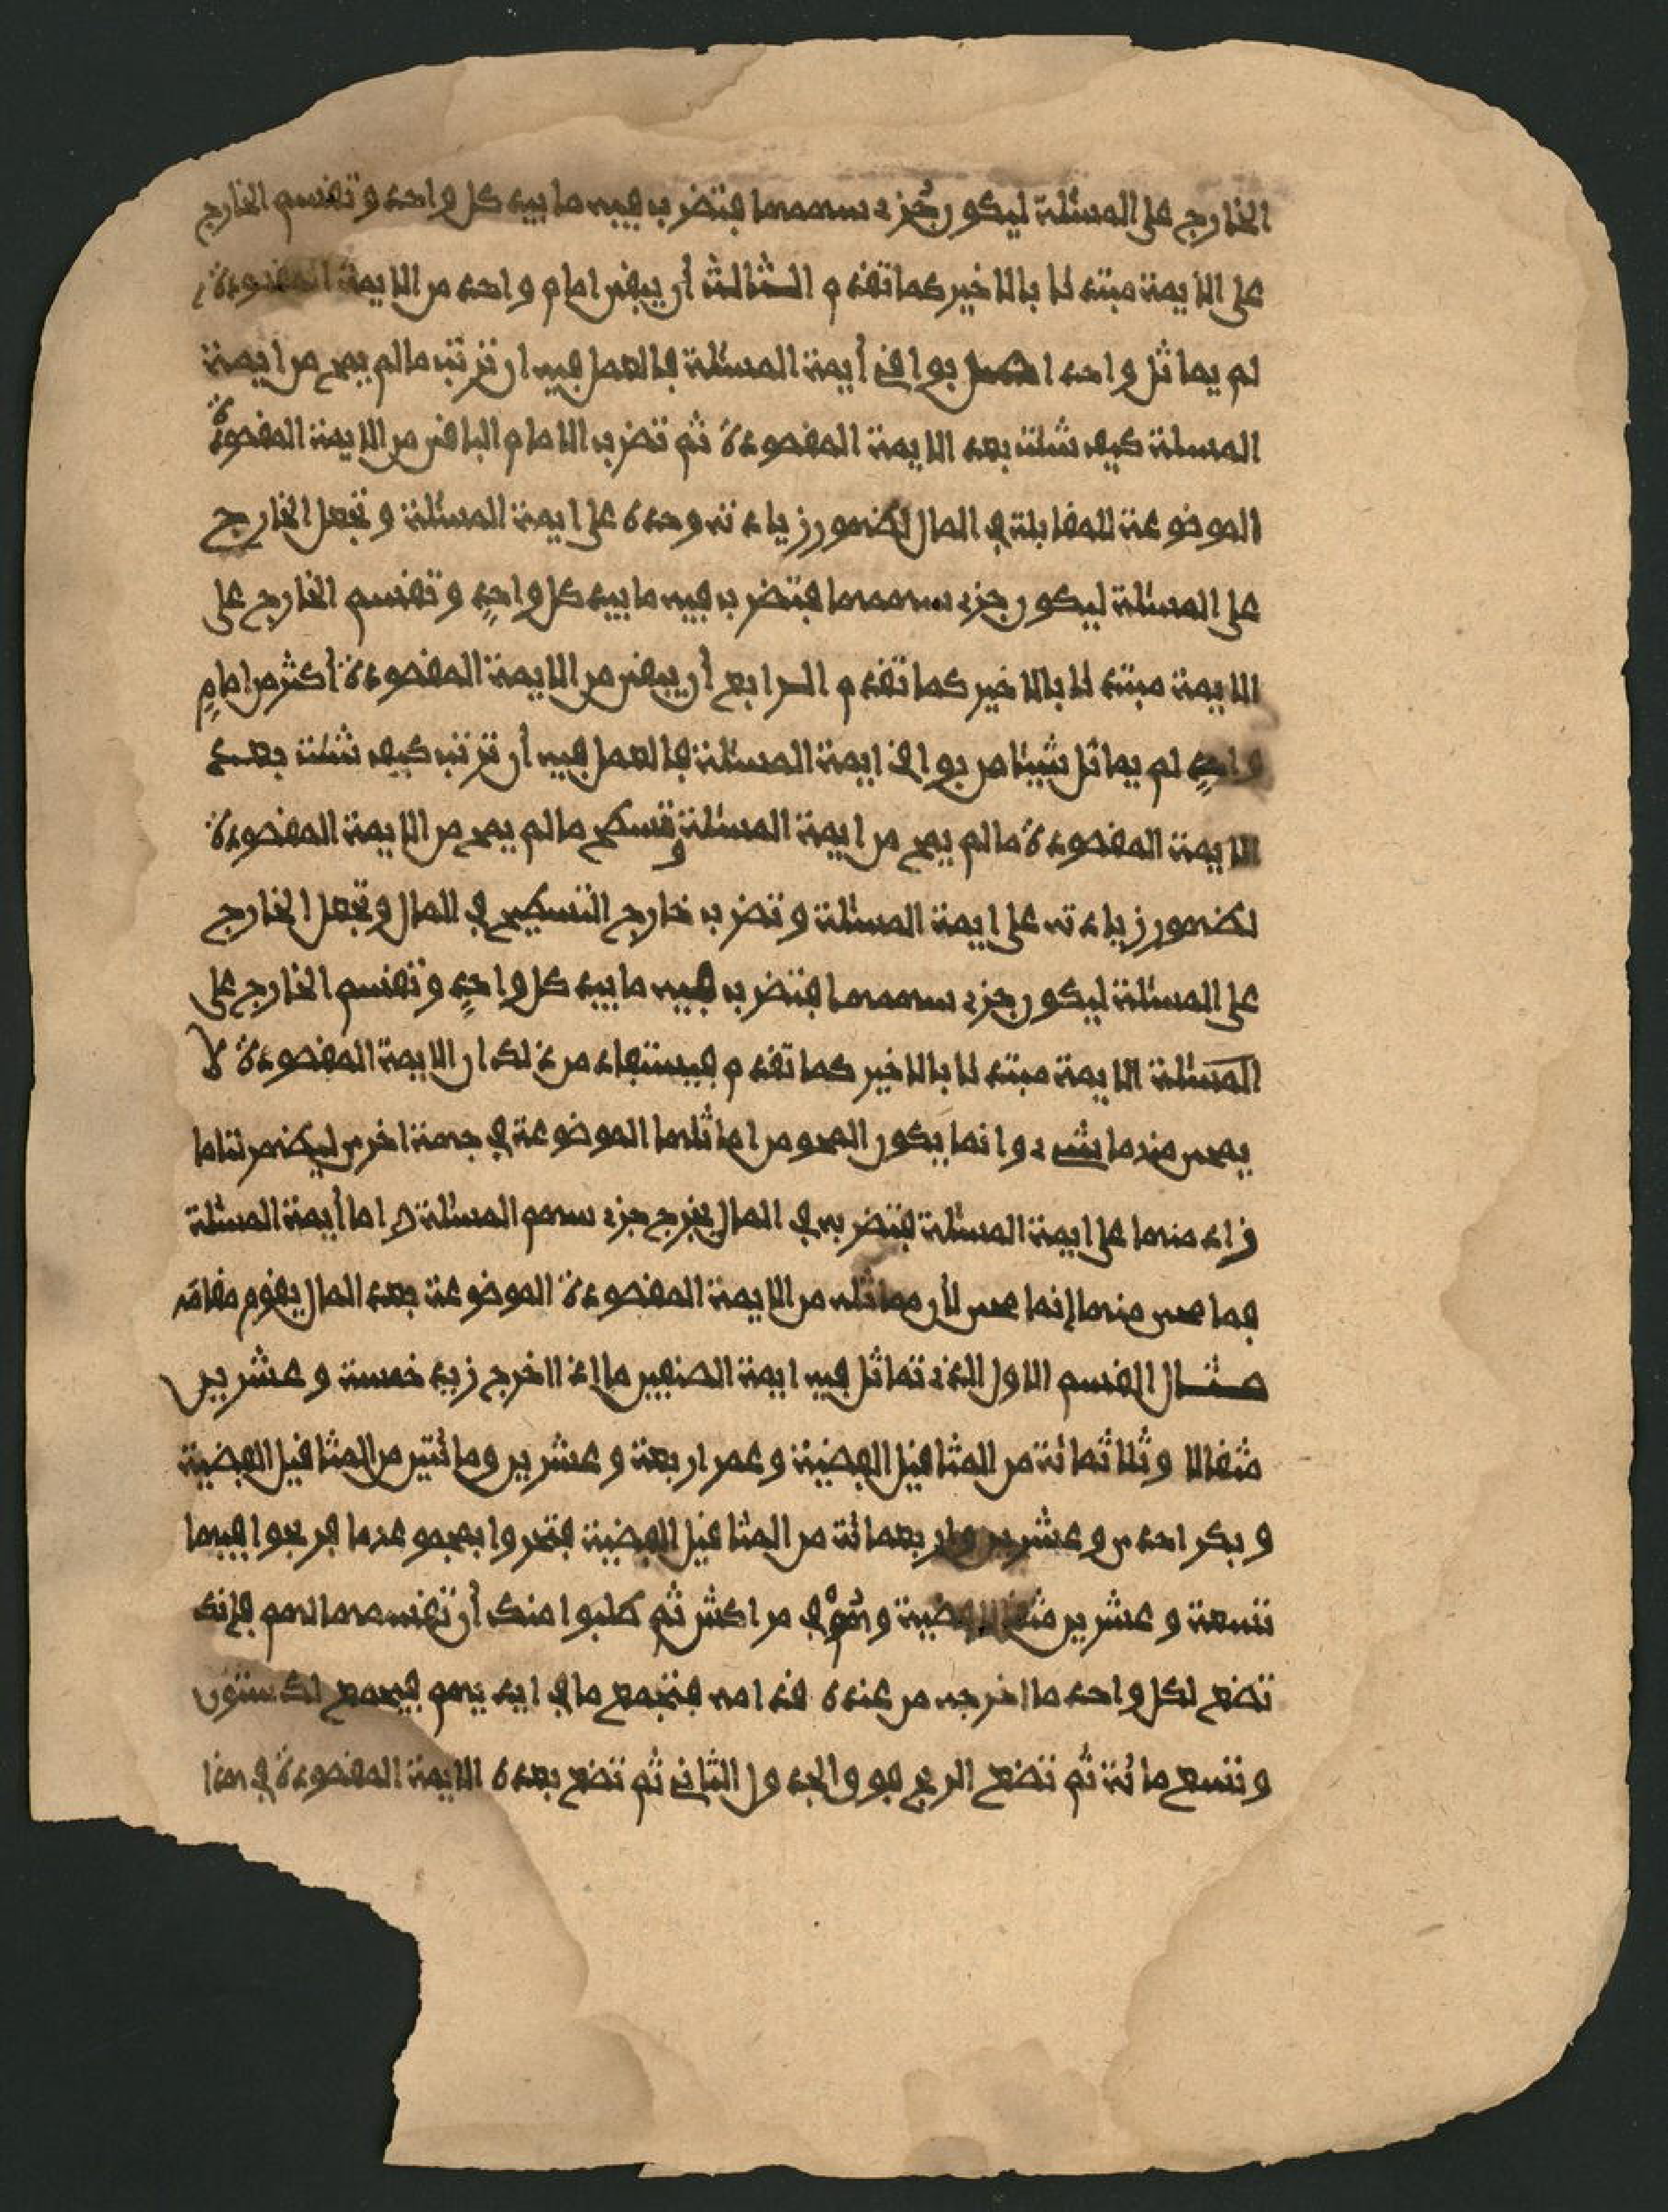 الخارج على المسئلة ليكون جزء سهمها فتضرب فيه ما بيد كل واحد وتقسم الخارج
على الايمة مبتدئا بالاخير كما تقدم الثالث أن يبقى امام واحد من الايمة المقصودة
لم يماثل واحدا بوافق أيمة المسئلة فالعمل فيه ان ترتب مالم يمح من ايمة
المسلة كيف شئت بعد الايمة المقصودة ثم تضرب الامام الباقى من الايمة المقصودة
الموضوعة للمقابلة في المال لظهور زيادته وحده على ايمة المسئلة وتجعل الخارج
على المسئلة ليكون جزء سهمها فتضرب فيه ما بيد كل واحدٍ وتقسم الخارج على
الايمة مبتدئا بالاخير كما تقدم الرابع أن يبقى من الايمة المقصودة أكثر من امامٍ
واحدٍ لم يماثل شيئا من بوافق ايمة المسئلة فالعمل فيه أن ترتب كيف شئت بعد
الايمة المقصودة مالم يمح من ايمة المسئلة وتسطح مالم يمح من الايمة المقصودة
لظهور زيادته على ايمة المسئلة وتضرب خارج التسطيح في المال وتجعل الخارج
على المسئلة ليكون جزء سهمها فتضرب فيه ما بيد كل واحدٍ وتقسم الخارج على
المسئلة الايمة مبتدئا بالاخير كما تقدم فيستفاد من ذلك ان الايمة المقصودة لا
يمحى منها شىء وانما يكون المحو من اماثلها الموضوعة في جهة اخرى ليظهر لنا ما
زاد منها على ايمة المسئلة فتضربه في المال يخرج جزء سهم المسئلة واما أيمة المسئلة
فما محى منها إنما محى لأن مماثله من الايمة المقصودة الموضوعة بعد المال يقوم مقامَه
مثال القسم الاول الذى تماثل فيه ايمة الصنفين ما اذا اخرج زيد خمسة وعشرين
مثقالا وثلاثمائة من المثاقيل الفضية وعمر اربعة وعشرين ومائتين من المثاقيل الفضية
وبكر احدى وعشرين واربعمائة من المثاقيل الفضية فتجروا بمجموعها فربحوا فيها
تسعة وعشرين مثقالا فضية وهُوْ في مراكش ثم طلبوا منك أن تقسمها لهم فإنك
تضع لكل واحد ما اخرجه من عنده قدامه فتجمع ما في ايديهم فيجمع لك ستون
وتسع مائة ثم تضع الربح فوق الجدول الثاني ثم تضع بعده الايمة المقصودة في هذا